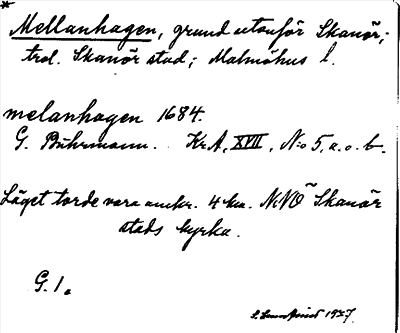 *
Mellanhagen, grund utanför Skanör;
trol. Skanör stad; Malmöhus l.
melanhagen 1684.
G. Buhrmann. Kr.A, XVII, N:o 5, a. o. b.
Läget torde vara omkr. 4 km. NNO Skanör
stads kyrka.
G. 1.
1927.